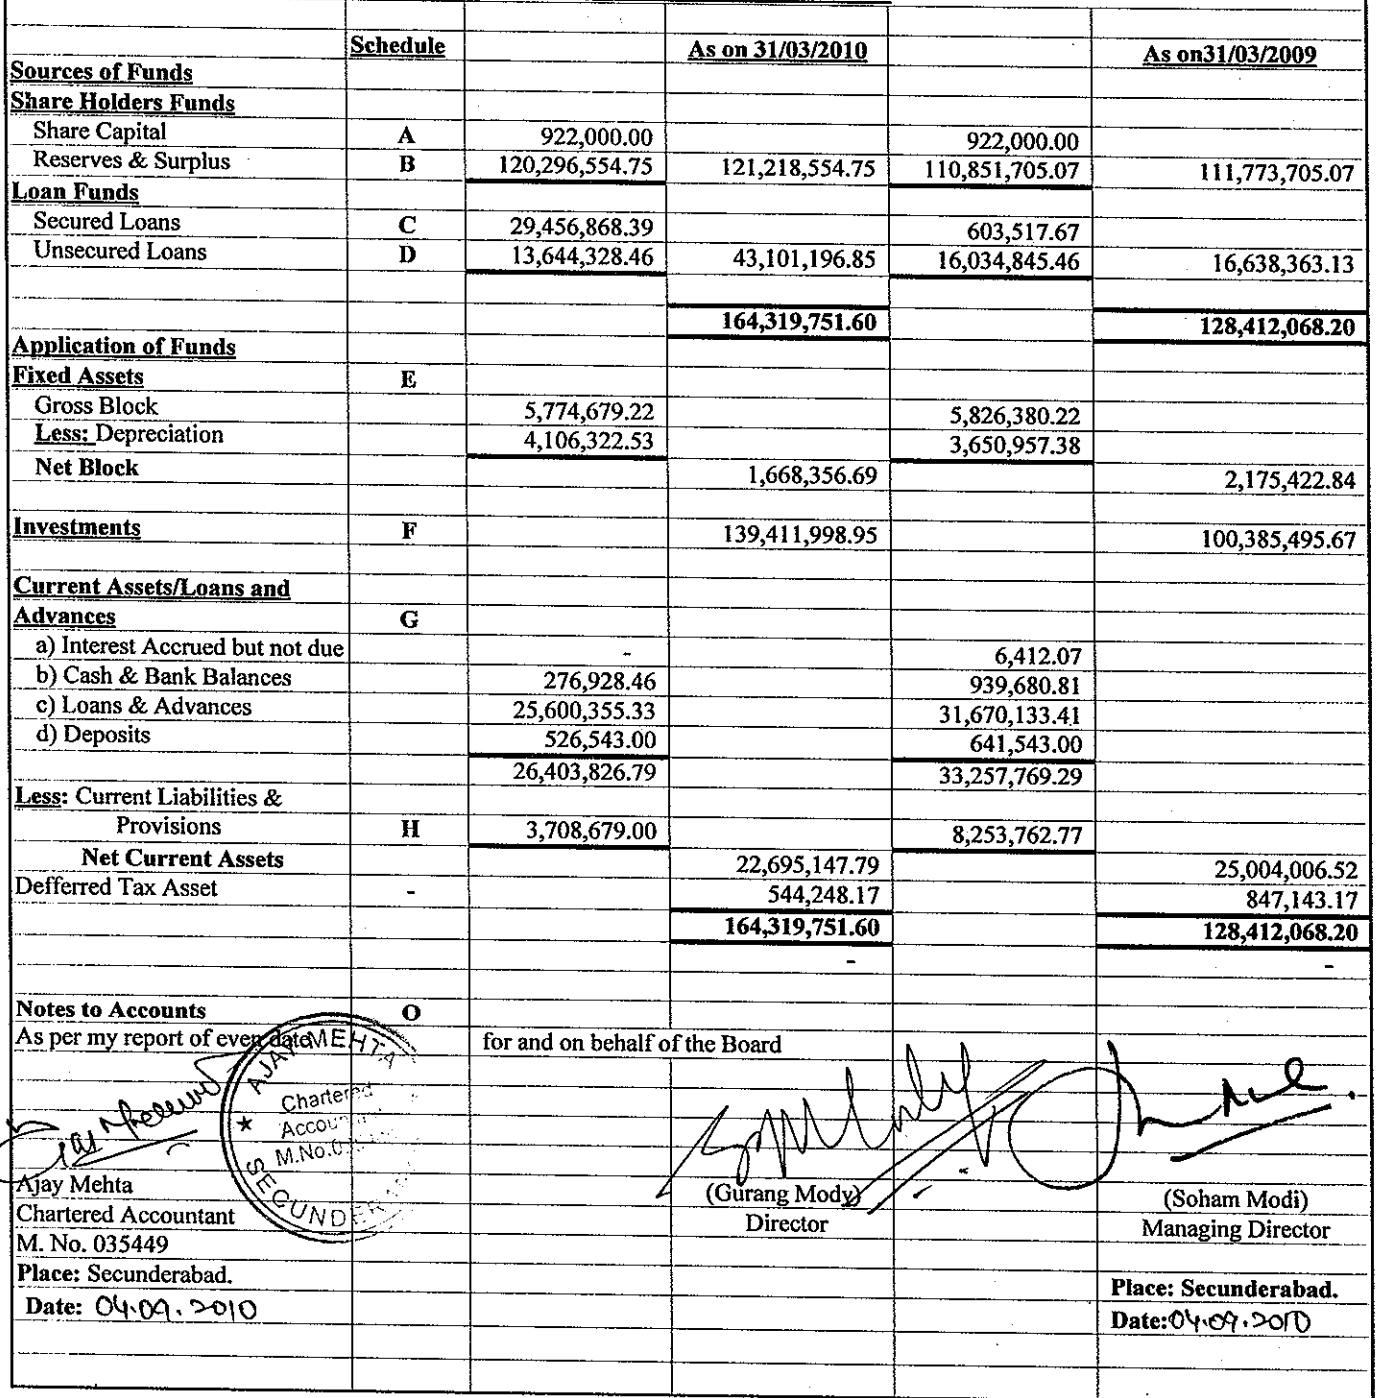 Schedule As on 31/03/2010 As on31/03/2009
Sources of Funds
Share Holders Funds
Share Capital A 922,000.00 922,000.00
Reserves & Surplus B 120,296,554.75 121,218,554.75 110,851,705.07 111,773,705.07
Loan Funds
Secured Loans C 29,456,868.39 603,517.67
Unsecured Loans D 13,644,328.46 43,101,196.85 16,034,845.46 16,638,363.13
164,319,751.60 128,412,068.20
Application of Funds
Fixed Assets E
Gross Block 5,774,679.22 5,826,380.22
Less: Depreciation 4,106,322.53 3,650,957.38
Net Block 1,668,356.69 2,175,422.84
Investments F 139,411,998.95 100,385,495.67
Current Assets/Loans and
Advances G
a) Interest Accrued but not due - 6,412.07
b) Cash & Bank Balances 276,928.46 939,680.81
c) Loans & Advances 25,600,355.33 31,670,133.41
d) Deposits 526,543.00 641,543.00
26,403,826.79 33,257,769.29
Less: Current Liabilities &
Provisions H 3,708,679.00 8,253,762.77
Net Current Assets 22,695,147.79 25,004,006.52
Defferred Tax Asset - 544,248.17 847,143.17
164,319,751.60 128,412,068.20
- -
Notes to Accounts O
As per my report of even date for and on behalf of the Board
AJAY MEHTA
Chartered
M.No.
Ajay Mehta (Gurang Mody) (Soham Modi)
Chartered Accountant Director Managing Director
M. No. 035449
Place: Secunderabad. Place: Secunderabad.
Date: 04.09.2010 Date:04.09.2010